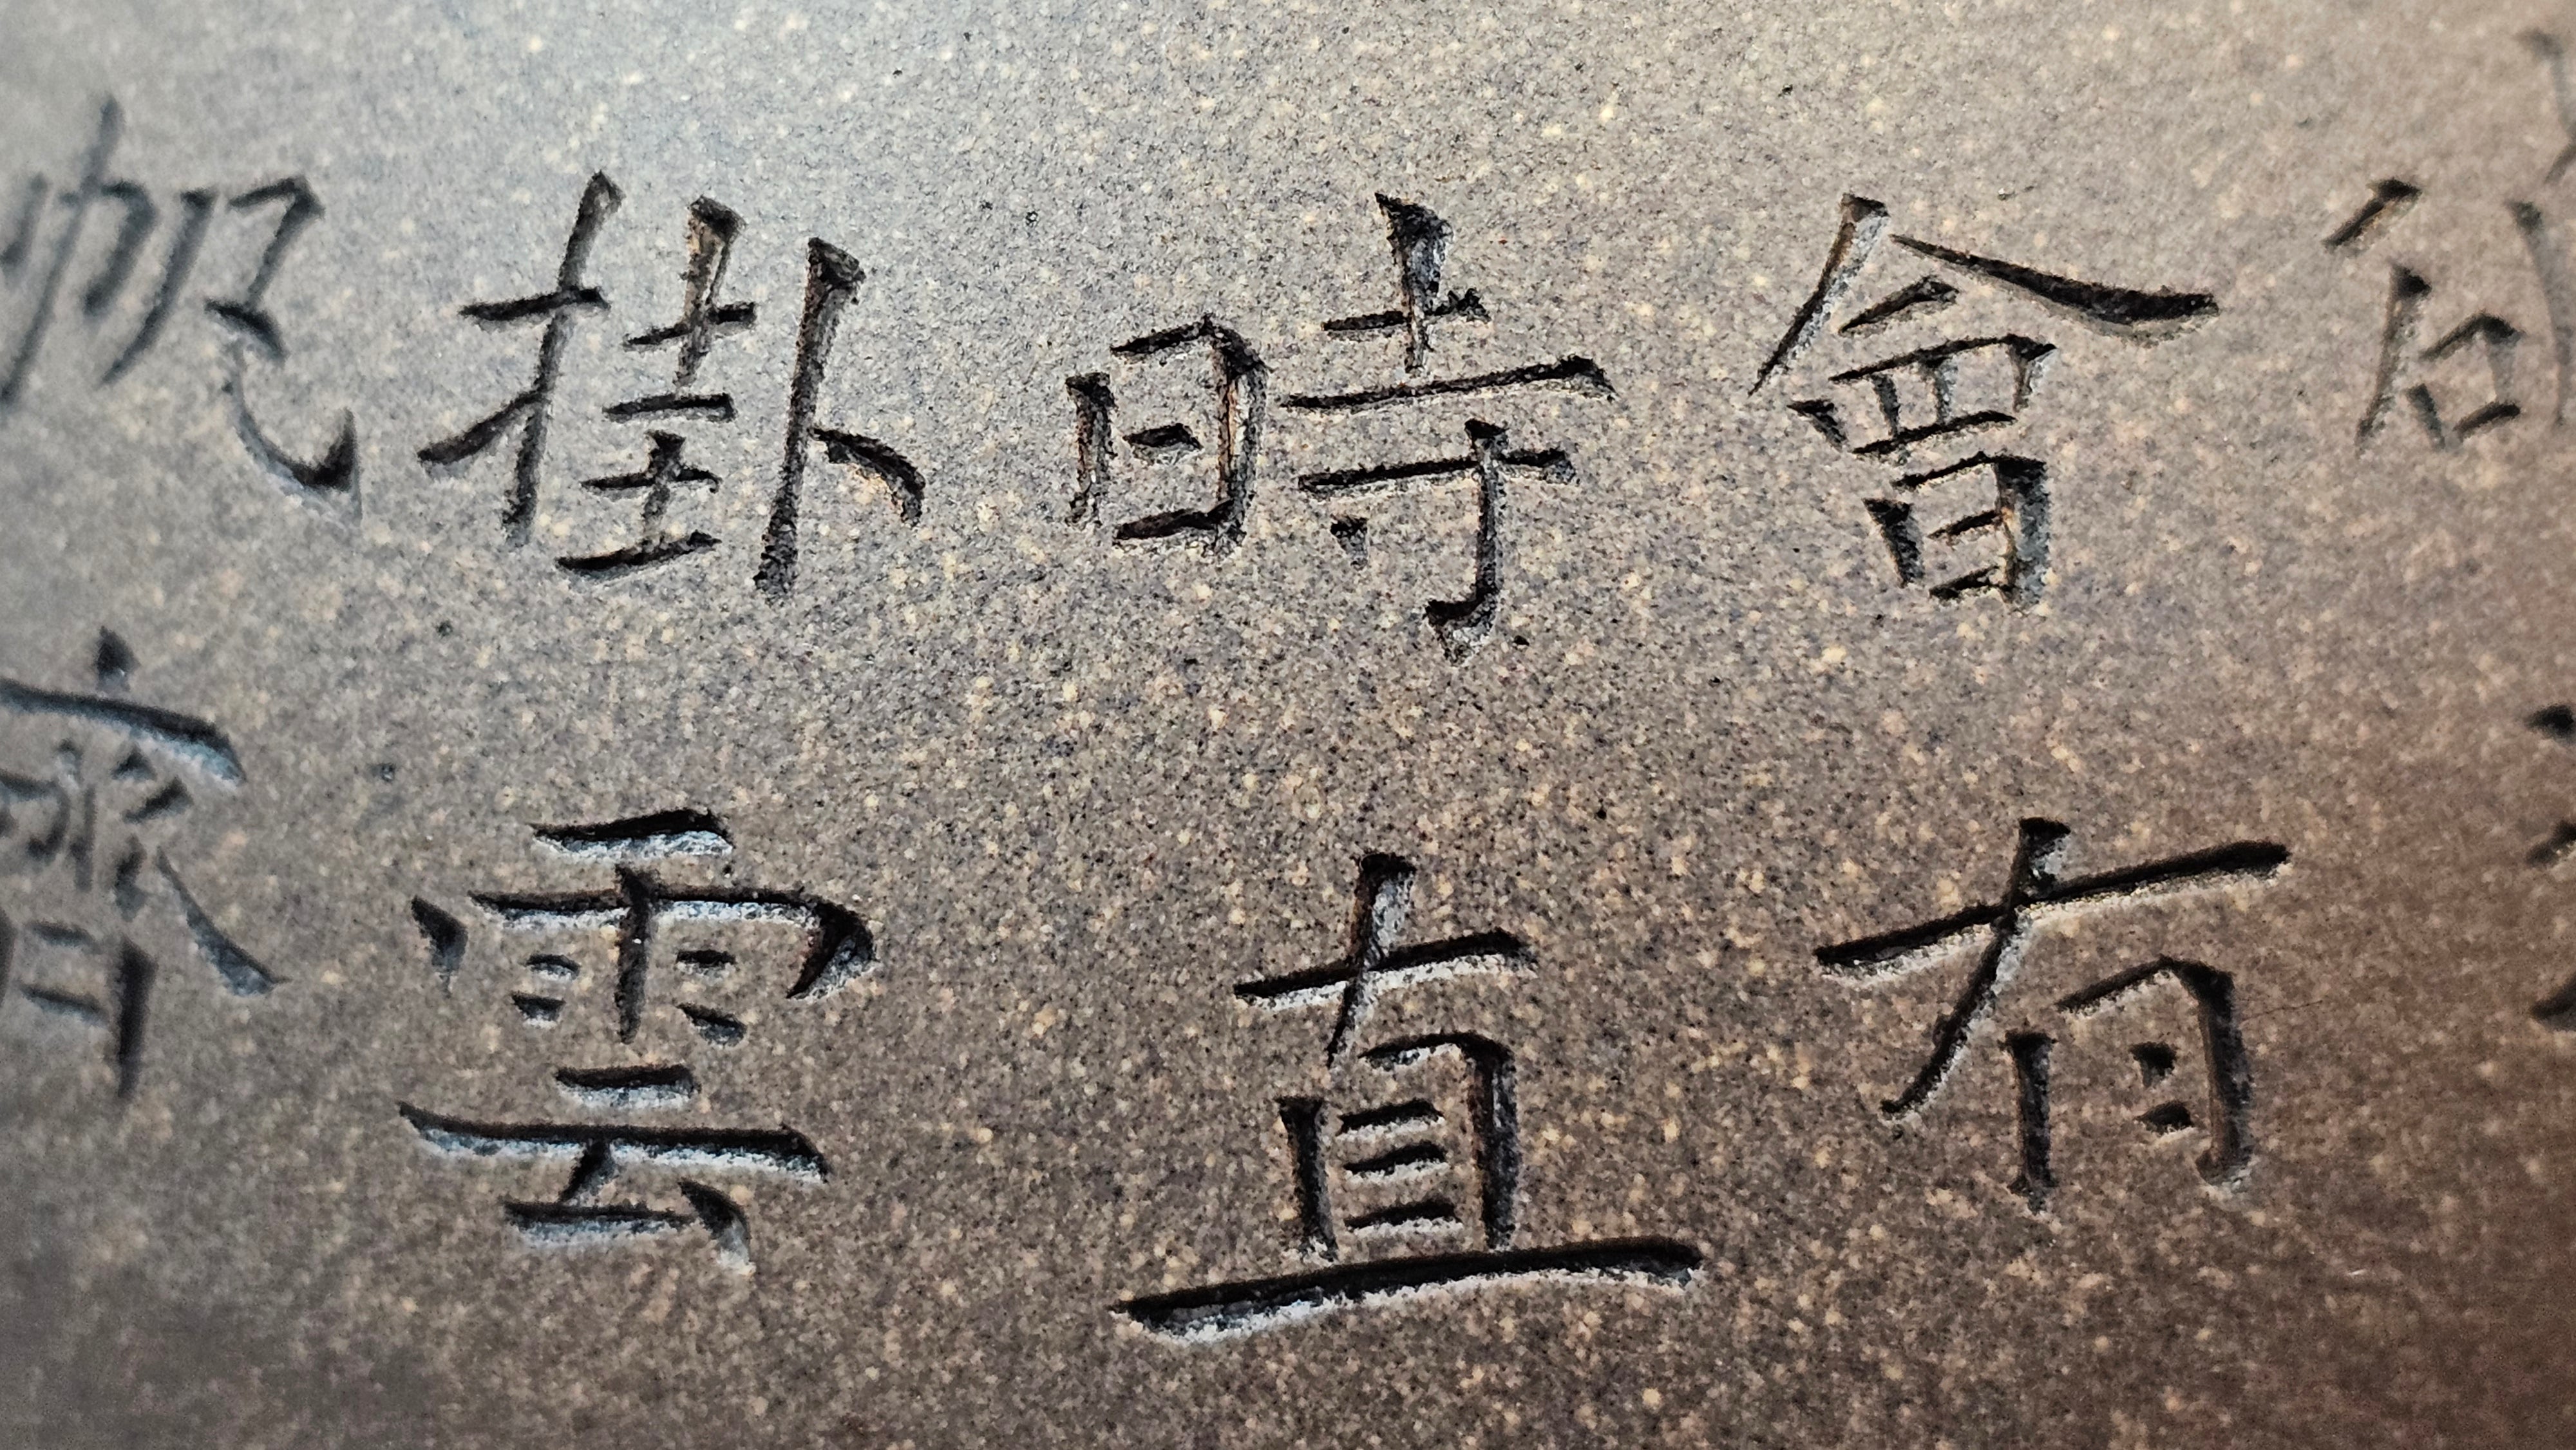 會有
時直
掛雲
帆濟